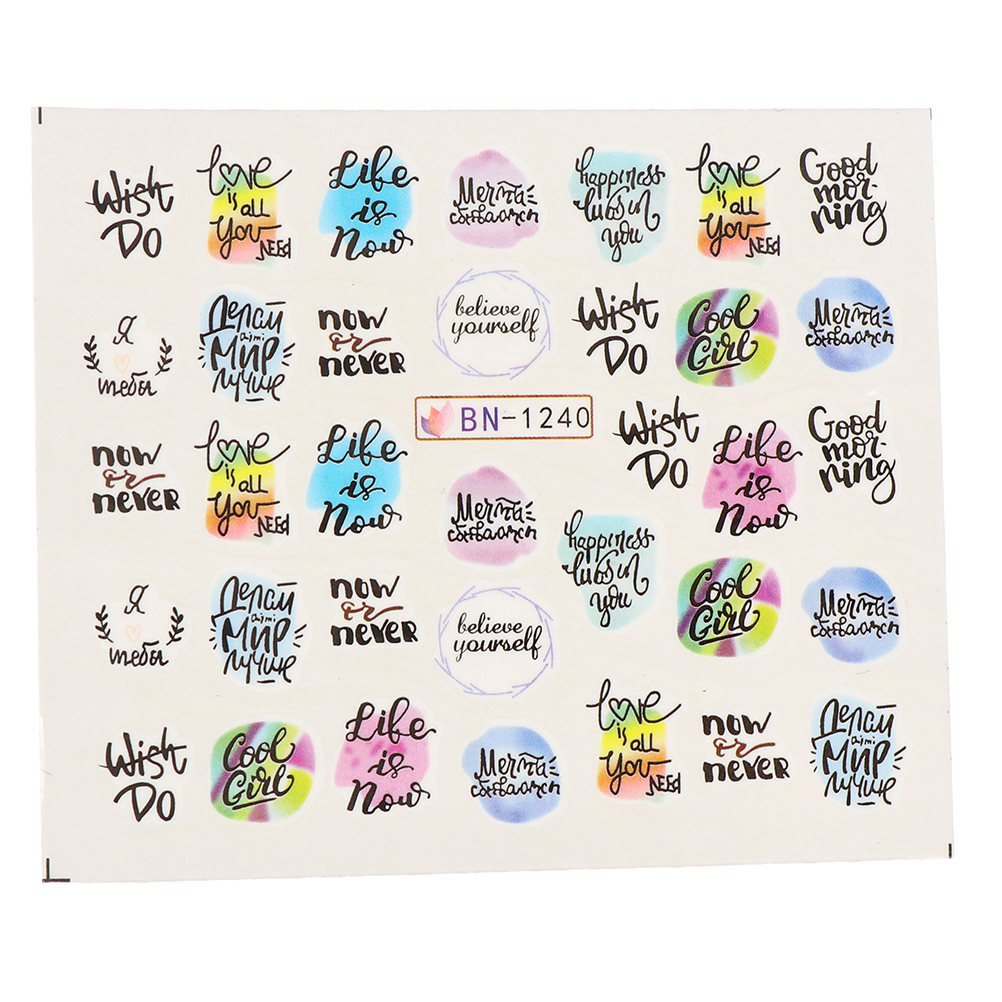 Wish
DO
Love
is all
You
NEED
Life
is
Now
Мечты
сбываются
happiness
lives in
you
Love
is all
You
NEED
Good
mor-
ning
Я
тебя
Делай
этот
Мир
лучше
now
or
never
believe
yourself
Wish
DO
Cool
Girl
Мечты
сбываются
BN-1240
now
or
never
Love
is all
You
NEED
Life
is
Now
Мечты
сбываются
happiness
lives in
you
Wish
DO
Life
is
Now
Good
mor-
ning
Я
тебя
Делай
этот
Мир
лучше
now
or
never
believe
yourself
Cool
Girl
Мечты
сбываются
Wish
DO
Cool
Girl
Life
is
Now
Мечты
сбываются
Love
is all
You
NEED
now
or
never
Делай
этот
Мир
лучше